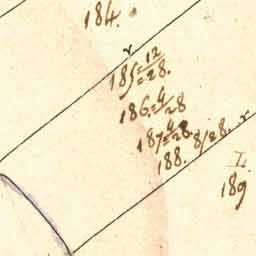 184.
r
185=12/28.
186=4/28
187=4/28.
188. 8/28. r
I.
189